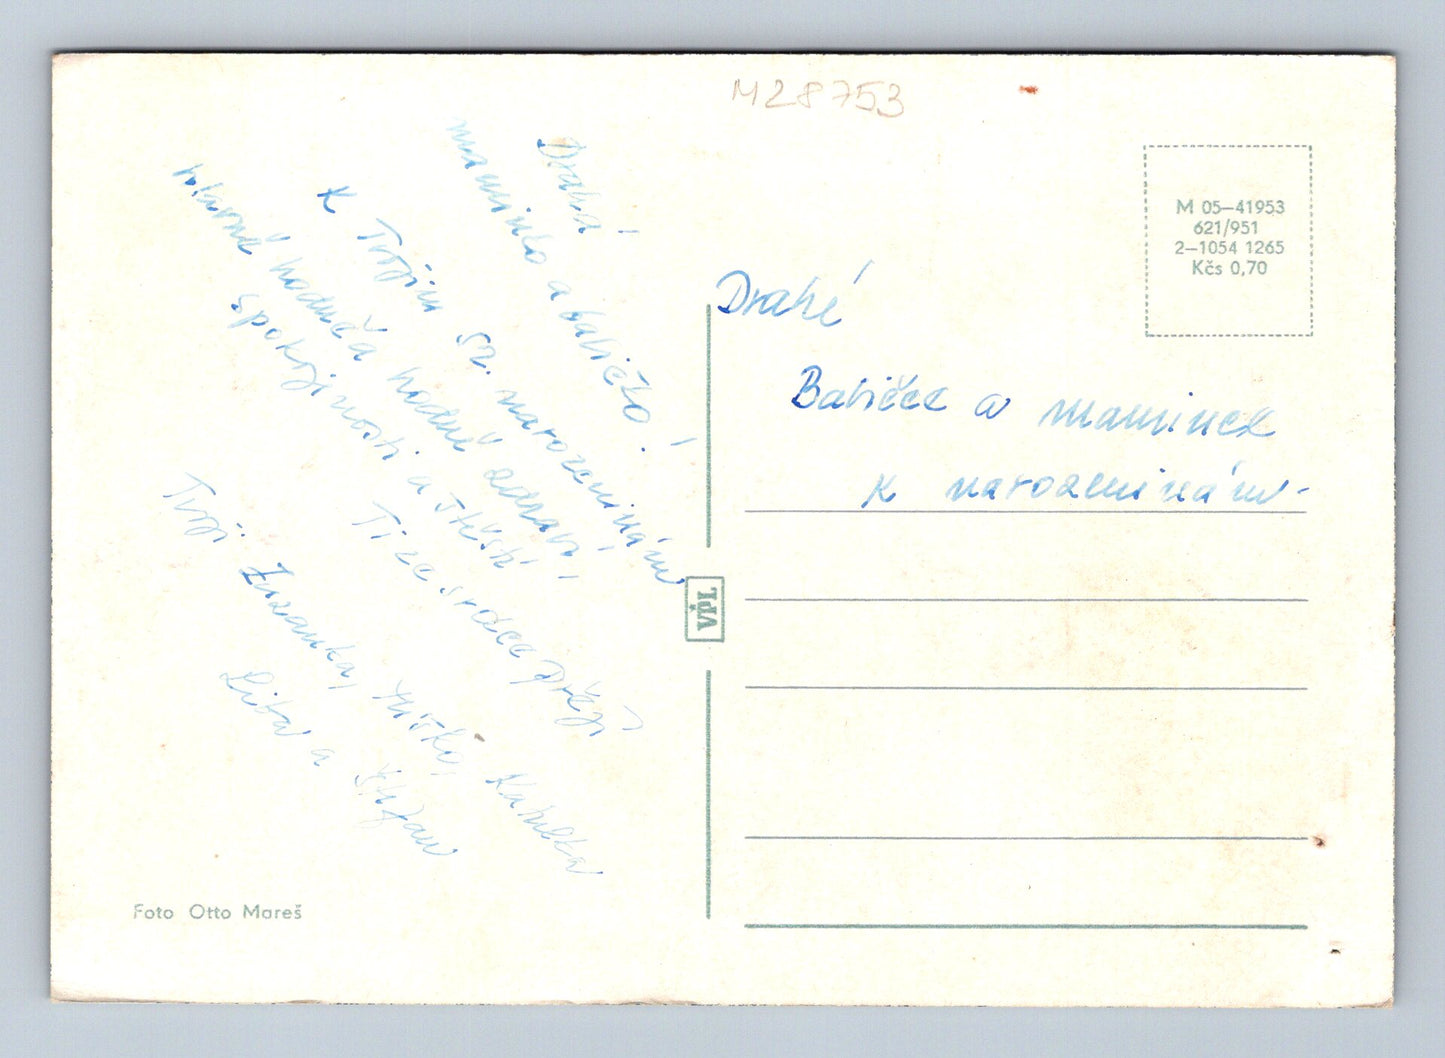 M28753
Drahá
maminko a babičko!
K Tvojim 52. narozeninám
hlavně hodně a hodně zdraví,
spokojinosti a štěstí
Ti ze srdce přejí
Tvoji Zuzanka, Jitka,
Liba a Štefan
Foto Otto Mareš
VPL
M 05–41953
621/951
2–1054 1265
Kčs 0,70
Drahé
Babičce a mamince
k narozeninám-